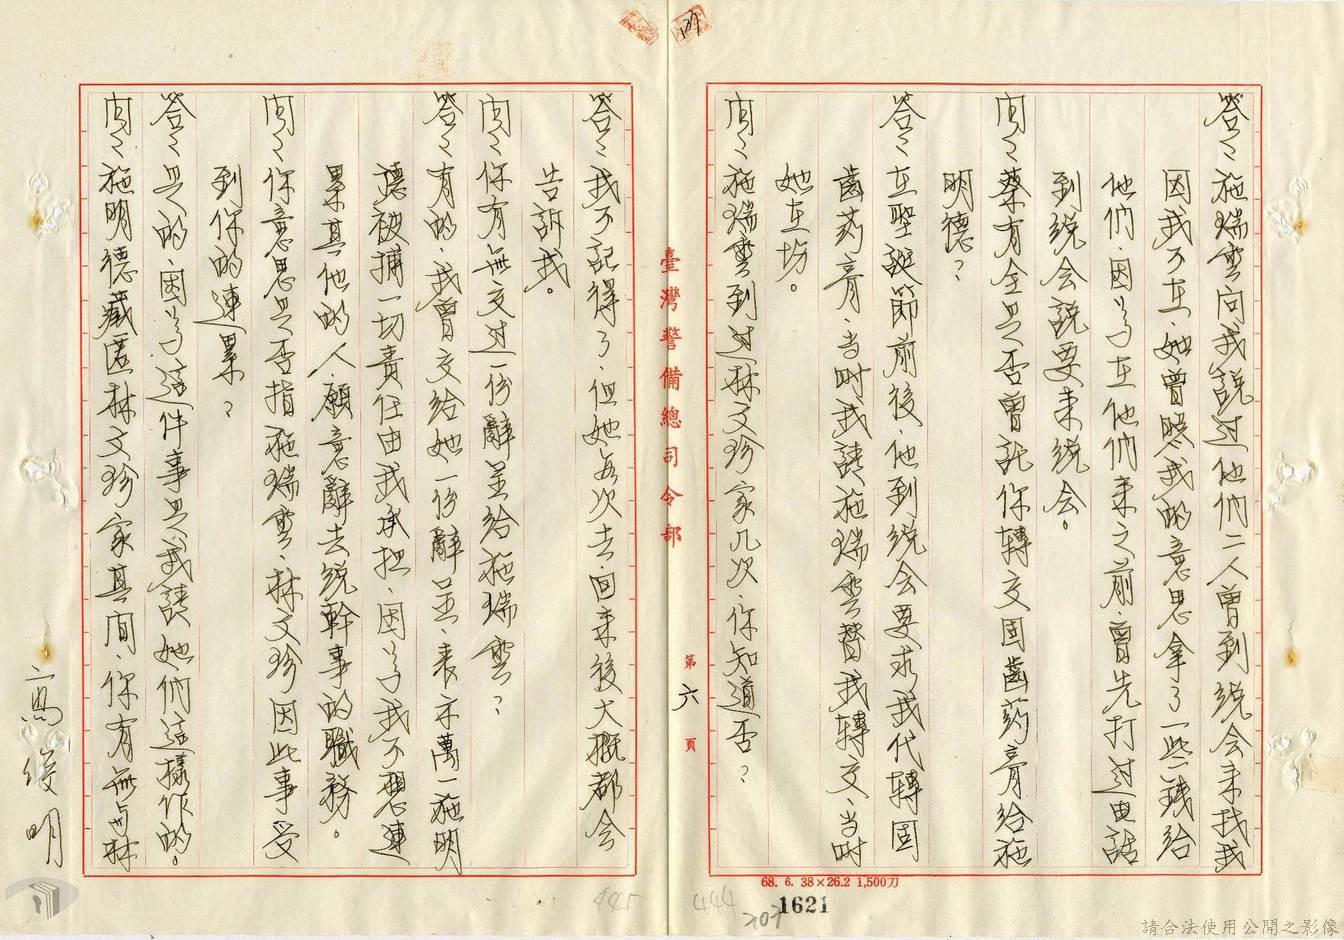 答:施瑞雲向我說過他們二人曾到總会來找我
因我不在,她曾照我的意思拿了一些錢給
他們,因为在他們來之前,曾先打过电話
到総会說要來総会。
问:蔡有全是否曾託你轉交固齒葯膏給施
明德?
答:在聖誕節前後,他到総会要求我代轉固
齒葯膏,当时我請施瑞雲替我轉交,当时
她在場。
问:施瑞雲到过林文珍家几次,你知道否?
臺灣警備總司令部
第六頁
答:我不記得了,但她每次去,回來後大概都会
告訴我。
问:你有無交过一份辭呈給施瑞雲?
答:有的,我曾交給她一份辭呈,表示萬一施明
德被捕一切責任由我承担,因为我不想連
累其他的人,願意辭去総幹事的職務。
问:你意思是否指施瑞雲、林文珍因此事受
到你的連累?
答:是的,因为這件事是我請她們這樣作的。
问:施明德藏匿林文珍家其间,你有無与林
高俊明
68. 6. 38×26.2 1,500刀
445
444
207
1621
請合法使用公開之影像